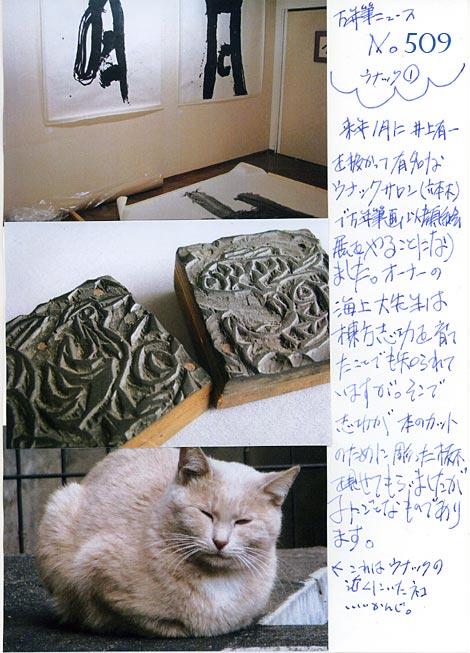 万年筆ニュース
No. 509
ウナック①
来年1月に井上有一
を扱かって有名な
ウナックサロン(六本木)
で万年筆画
展をやることになり
ました。オーナーの
海上大先生は
棟方志功を育て
たことでも知られて
いますが。そこで
志功が本のカット
のために彫った板木
を見せてもらいましたが
みごとなものであり
ます。
←これはウナックの
近くにいたネコ
いいかんじ。